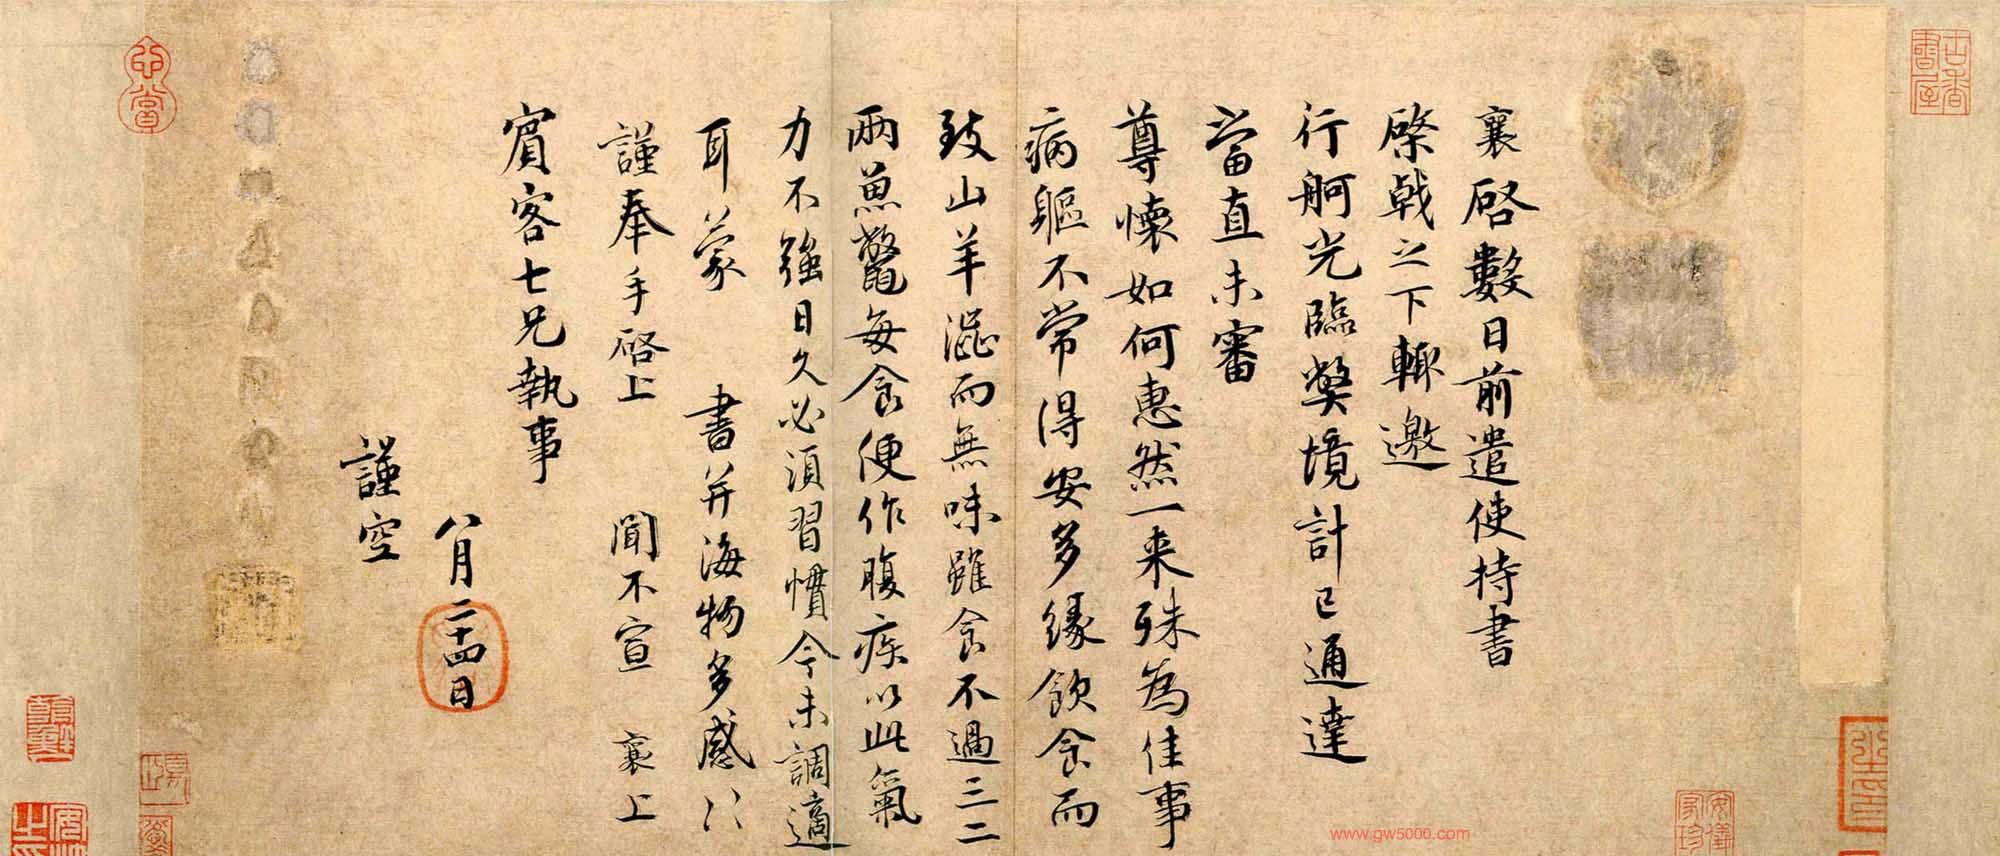 襄啓數日前遣使持書
啓戟之下輙邀
行舸光臨獘境計已通達
當直未審
尊懷如何惠然一来殊為佳事
病軀不常得安多緣飲食而
致山羊澁而無味雖食不過三二
兩魚鱉每食便作腹疾以此氣
力不強日久必須習慣今未調適
耳蒙 書并海物多感〻
謹奉手啓上 聞不宣 襄上
賓客七兄執事
八月二十四日
謹空
www.gw5000.com